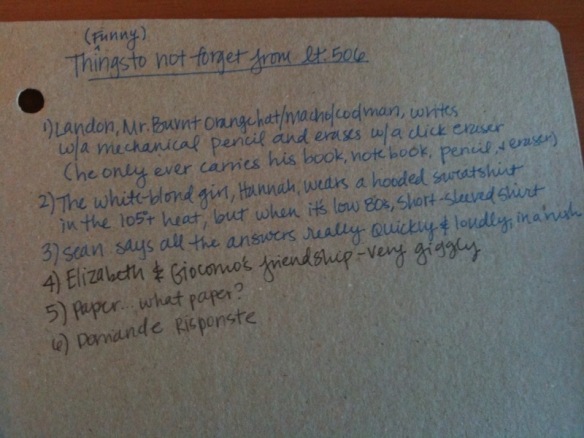 (Funny)
Things to not forget from It. 506
1) Landon, Mr. Burnt Orange hat/macho/cool man, writes
w/a mechanical pencil and erases w/a click eraser
(he only ever carries his book, notebook, pencil, & eraser)
2) The white-blond girl, Hannah, wears a hooded sweatshirt
in the 105+ heat, but when it's low 80s, short-sleeved shirt
3) Sean says all the answers really quickly & loudly, in a high
4) Elizabeth & Giocomo's friendship - very giggly
5) Paper... what paper?
6) Domande Risponste